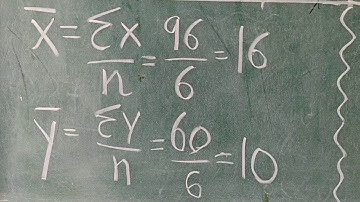 x̅ = Σx/n = 96/6 = 16
y̅ = Σy/n = 60/6 = 10